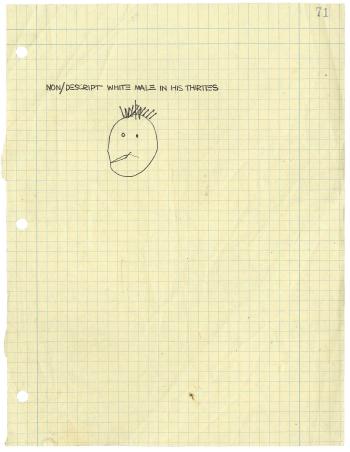 71
NON/DESCRIPT WHITE MALE IN HIS THIRTIES